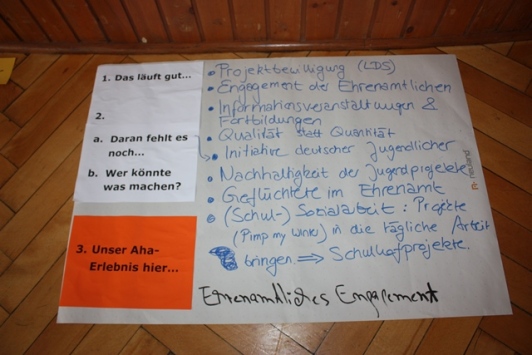 1. Das läuft gut...
2.
a. Daran fehlt es
noch...
b. Wer könnte
was machen?
3. Unser Aha-
Erlebnis hier...
• Projektbewilligung (LDS)
• Engagement der Ehrenamtlichen
• Informationsveranstaltungen &
Fortbildungen
• Qualität statt Quantität
• Initiative deutscher Jugendlicher
• Nachhaltigkeit der Jugendprojekte
• Geflüchtete im Ehrenamt
• (Schul-) Sozialarbeit: Projekte
(Pimp my) in die tägliche Arbeit
bringen ⇒ Schulhofprojekte.
Ehrenamtliches Engagement
Neuland